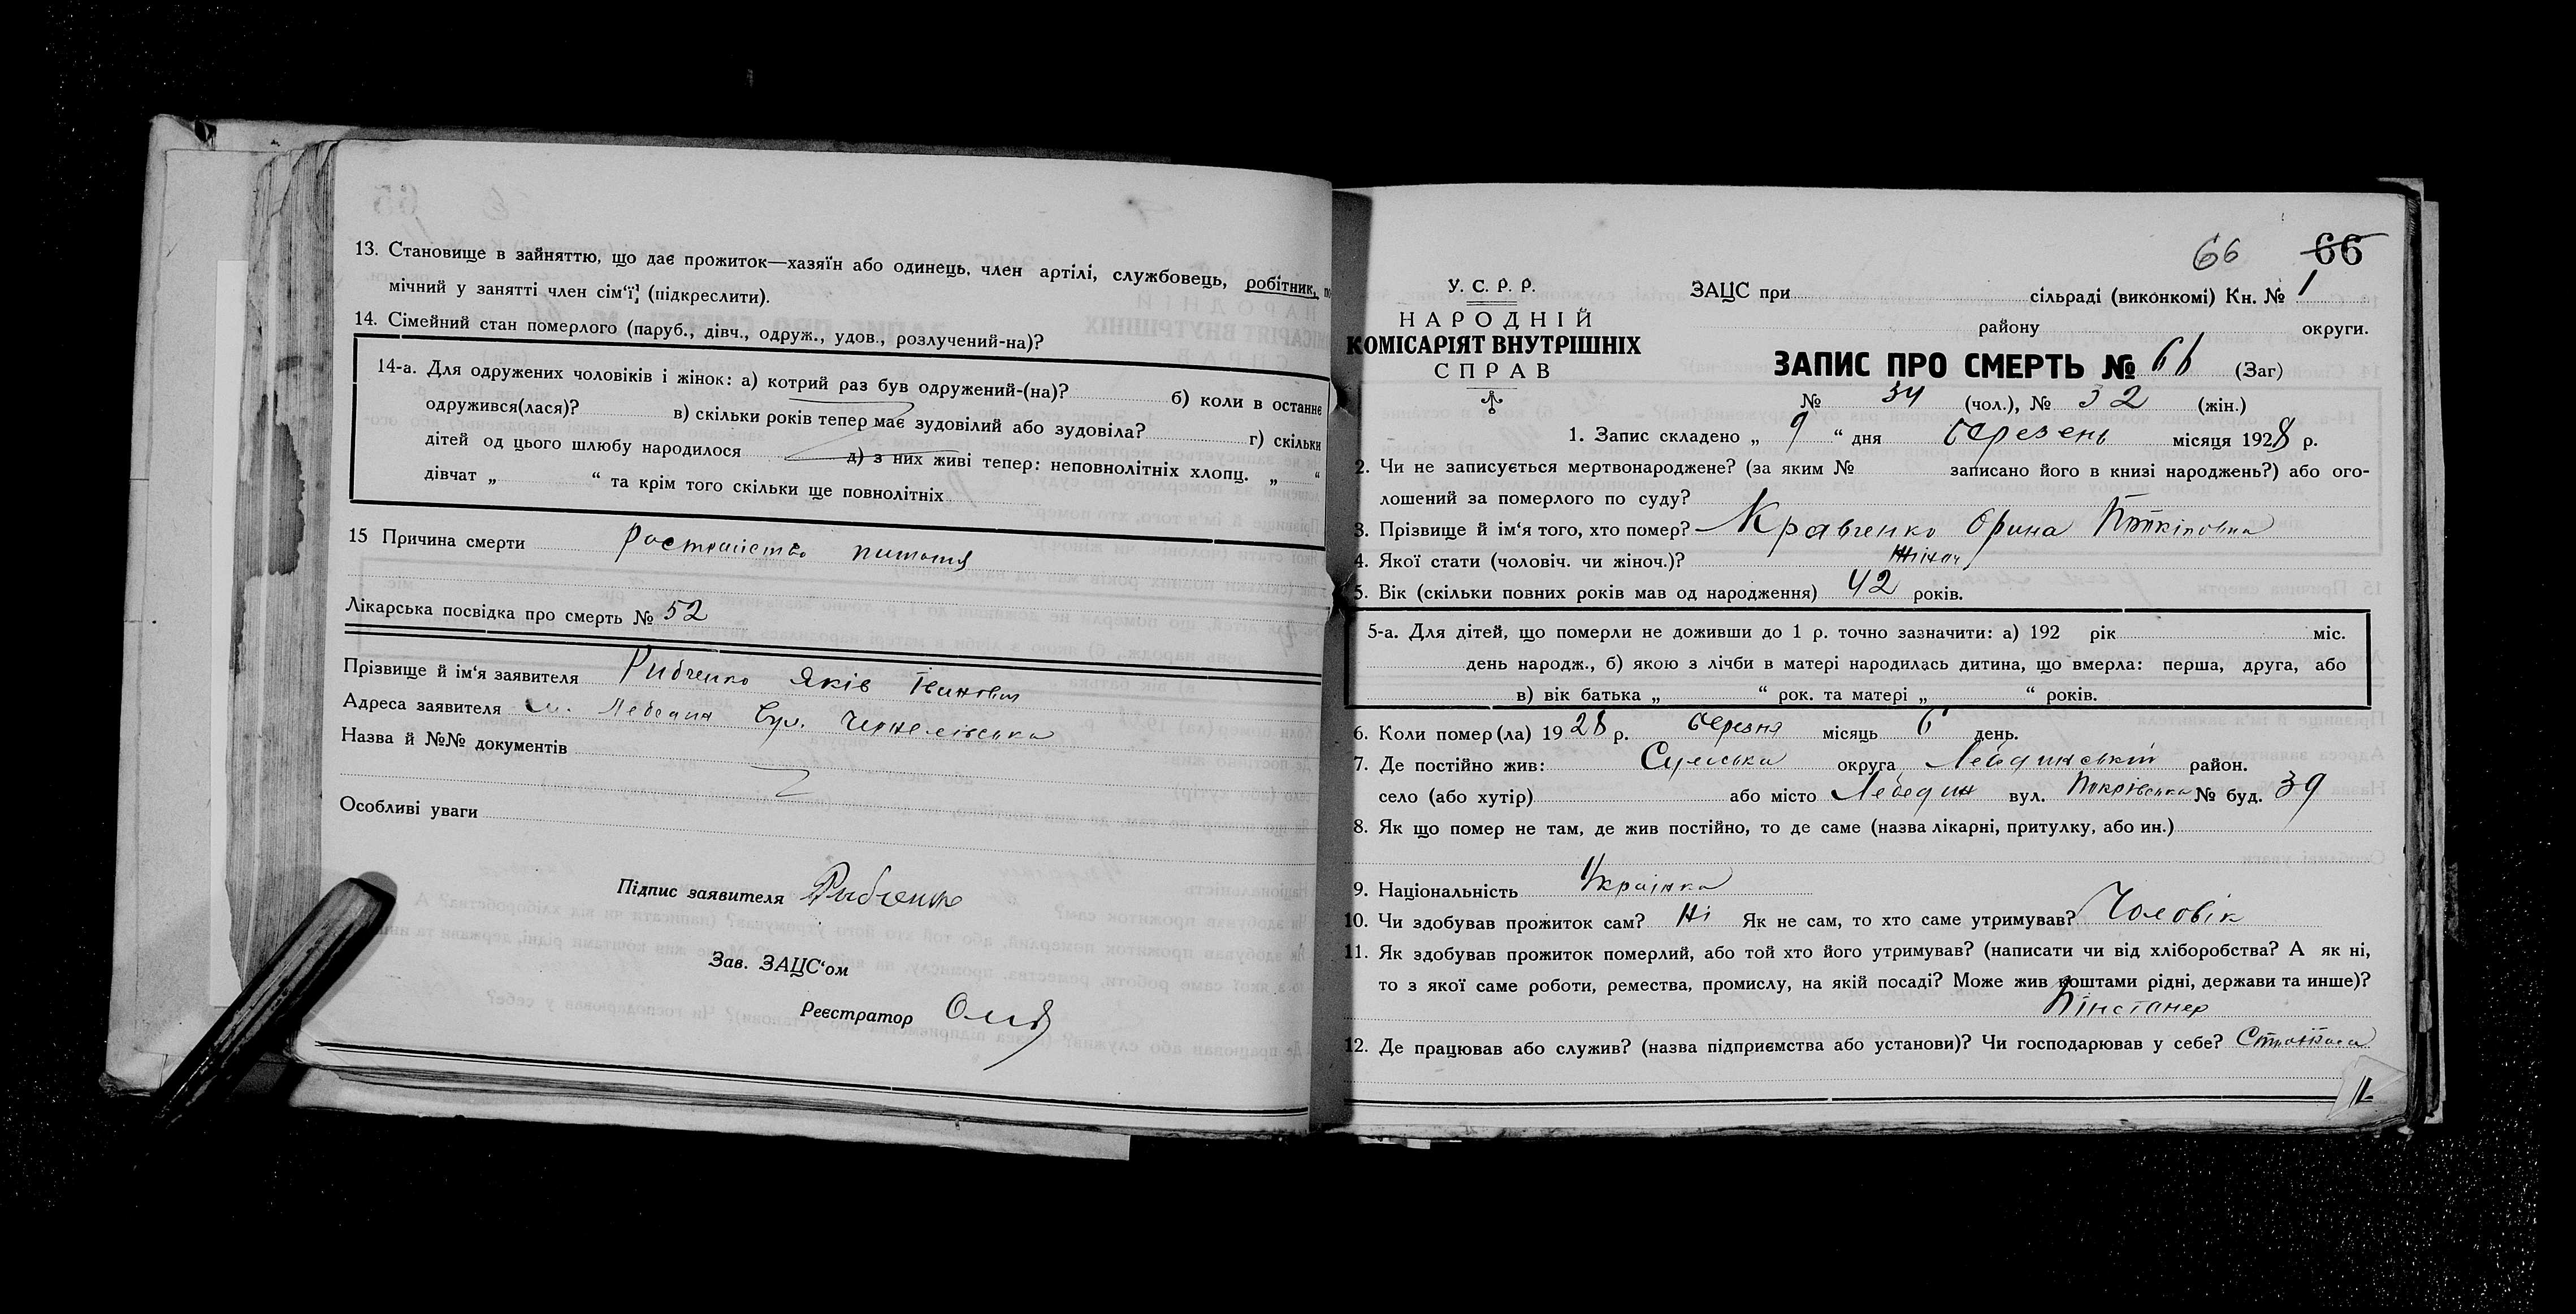 13. Становище в зайняттю, що дає прожиток—хазяїн або одинець, член артілі, службовець, робітник, по
мічний у занятті член сім‘ї, (підкреслити).
14. Сімейний стан померлого (паруб., дівч., одруж., удов., розлучений-на)?
14-а. Для одружених чоловіків і жінок: а) котрий раз був одружений-(на)? б) коли в останнє
одружився(лася)? в) скільки років тепер має зудовілий або зудовіла? г) скільки
дітей од цього шлюбу народилося д) з них живі тепер: неповнолітніх хлопц. „ “
дівчат „ “ та крім того скільки ще повнолітніх
15 Причина смерти ростройство питания
Лікарська посвідка про смерть № 52
Прізвище й ім‘я заявителя Рибченко Яків Іванович
Адреса заявителя м. Лебедин Вул.
Назва й №№ документів
Особливі уваги
Підпис заявителя Рибченко
Зав. ЗАЦС‘ом
Реєстратор
66 66
У. С. Р. Р.
НАРОДНІЙ
КОМІСАРІЯТ ВНУТРІШНІХ
СПРАВ
ЗАЦС при сільраді (виконкомі) Кн. № 1
району округи.
ЗАПИС ПРО СМЕРТЬ № 66 (Заг)
№ 34 (чол.), № 32 (жін.)
1. Запис складено „ 9 “ дня березень місяця 1928 р.
2. Чи не записується мертвонароджене? (за яким № записано його в книзі народжень?) або ого-
лошений за померлого по суду?
3. Прізвище й ім‘я того, хто помер? Кравченко Орина
4. Якої стати (чоловіч. чи жіноч.)? Жіноч
5. Вік (скільки повних років мав од народження) 42 років.
5-а. Для дітей, що померли не доживши до 1 р. точно зазначити: а) 192 рік міс.
день народж., б) якою з лічби в матері народилась дитина, що вмерла: перша, друга, або
в) вік батька „ “ рок. та матері „ “ років.
6. Коли помер(ла) 1928 р. березня місяць 6 день.
7. Де постійно жив: Сумська округа Лебединський район.
село (або хутір) або місто Лебедин вул. Покрівська № буд. 39
8. Як що помер не там, де жив постійно, то де саме (назва лікарні, притулку, або ин.)
9. Національність Українка
10. Чи здобував прожиток сам? Ні Як не сам, то хто саме утримував? Чоловік
11. Як здобував прожиток померлий, або той хто його утримував? (написати чи від хліборобства? А як ні,
то з якої саме роботи, ремества, промислу, на якій посаді? Може жив коштами рідні, держави та инше)?
12. Де працював або служив? (назва підприємства або установи)? Чи господарював у себе?